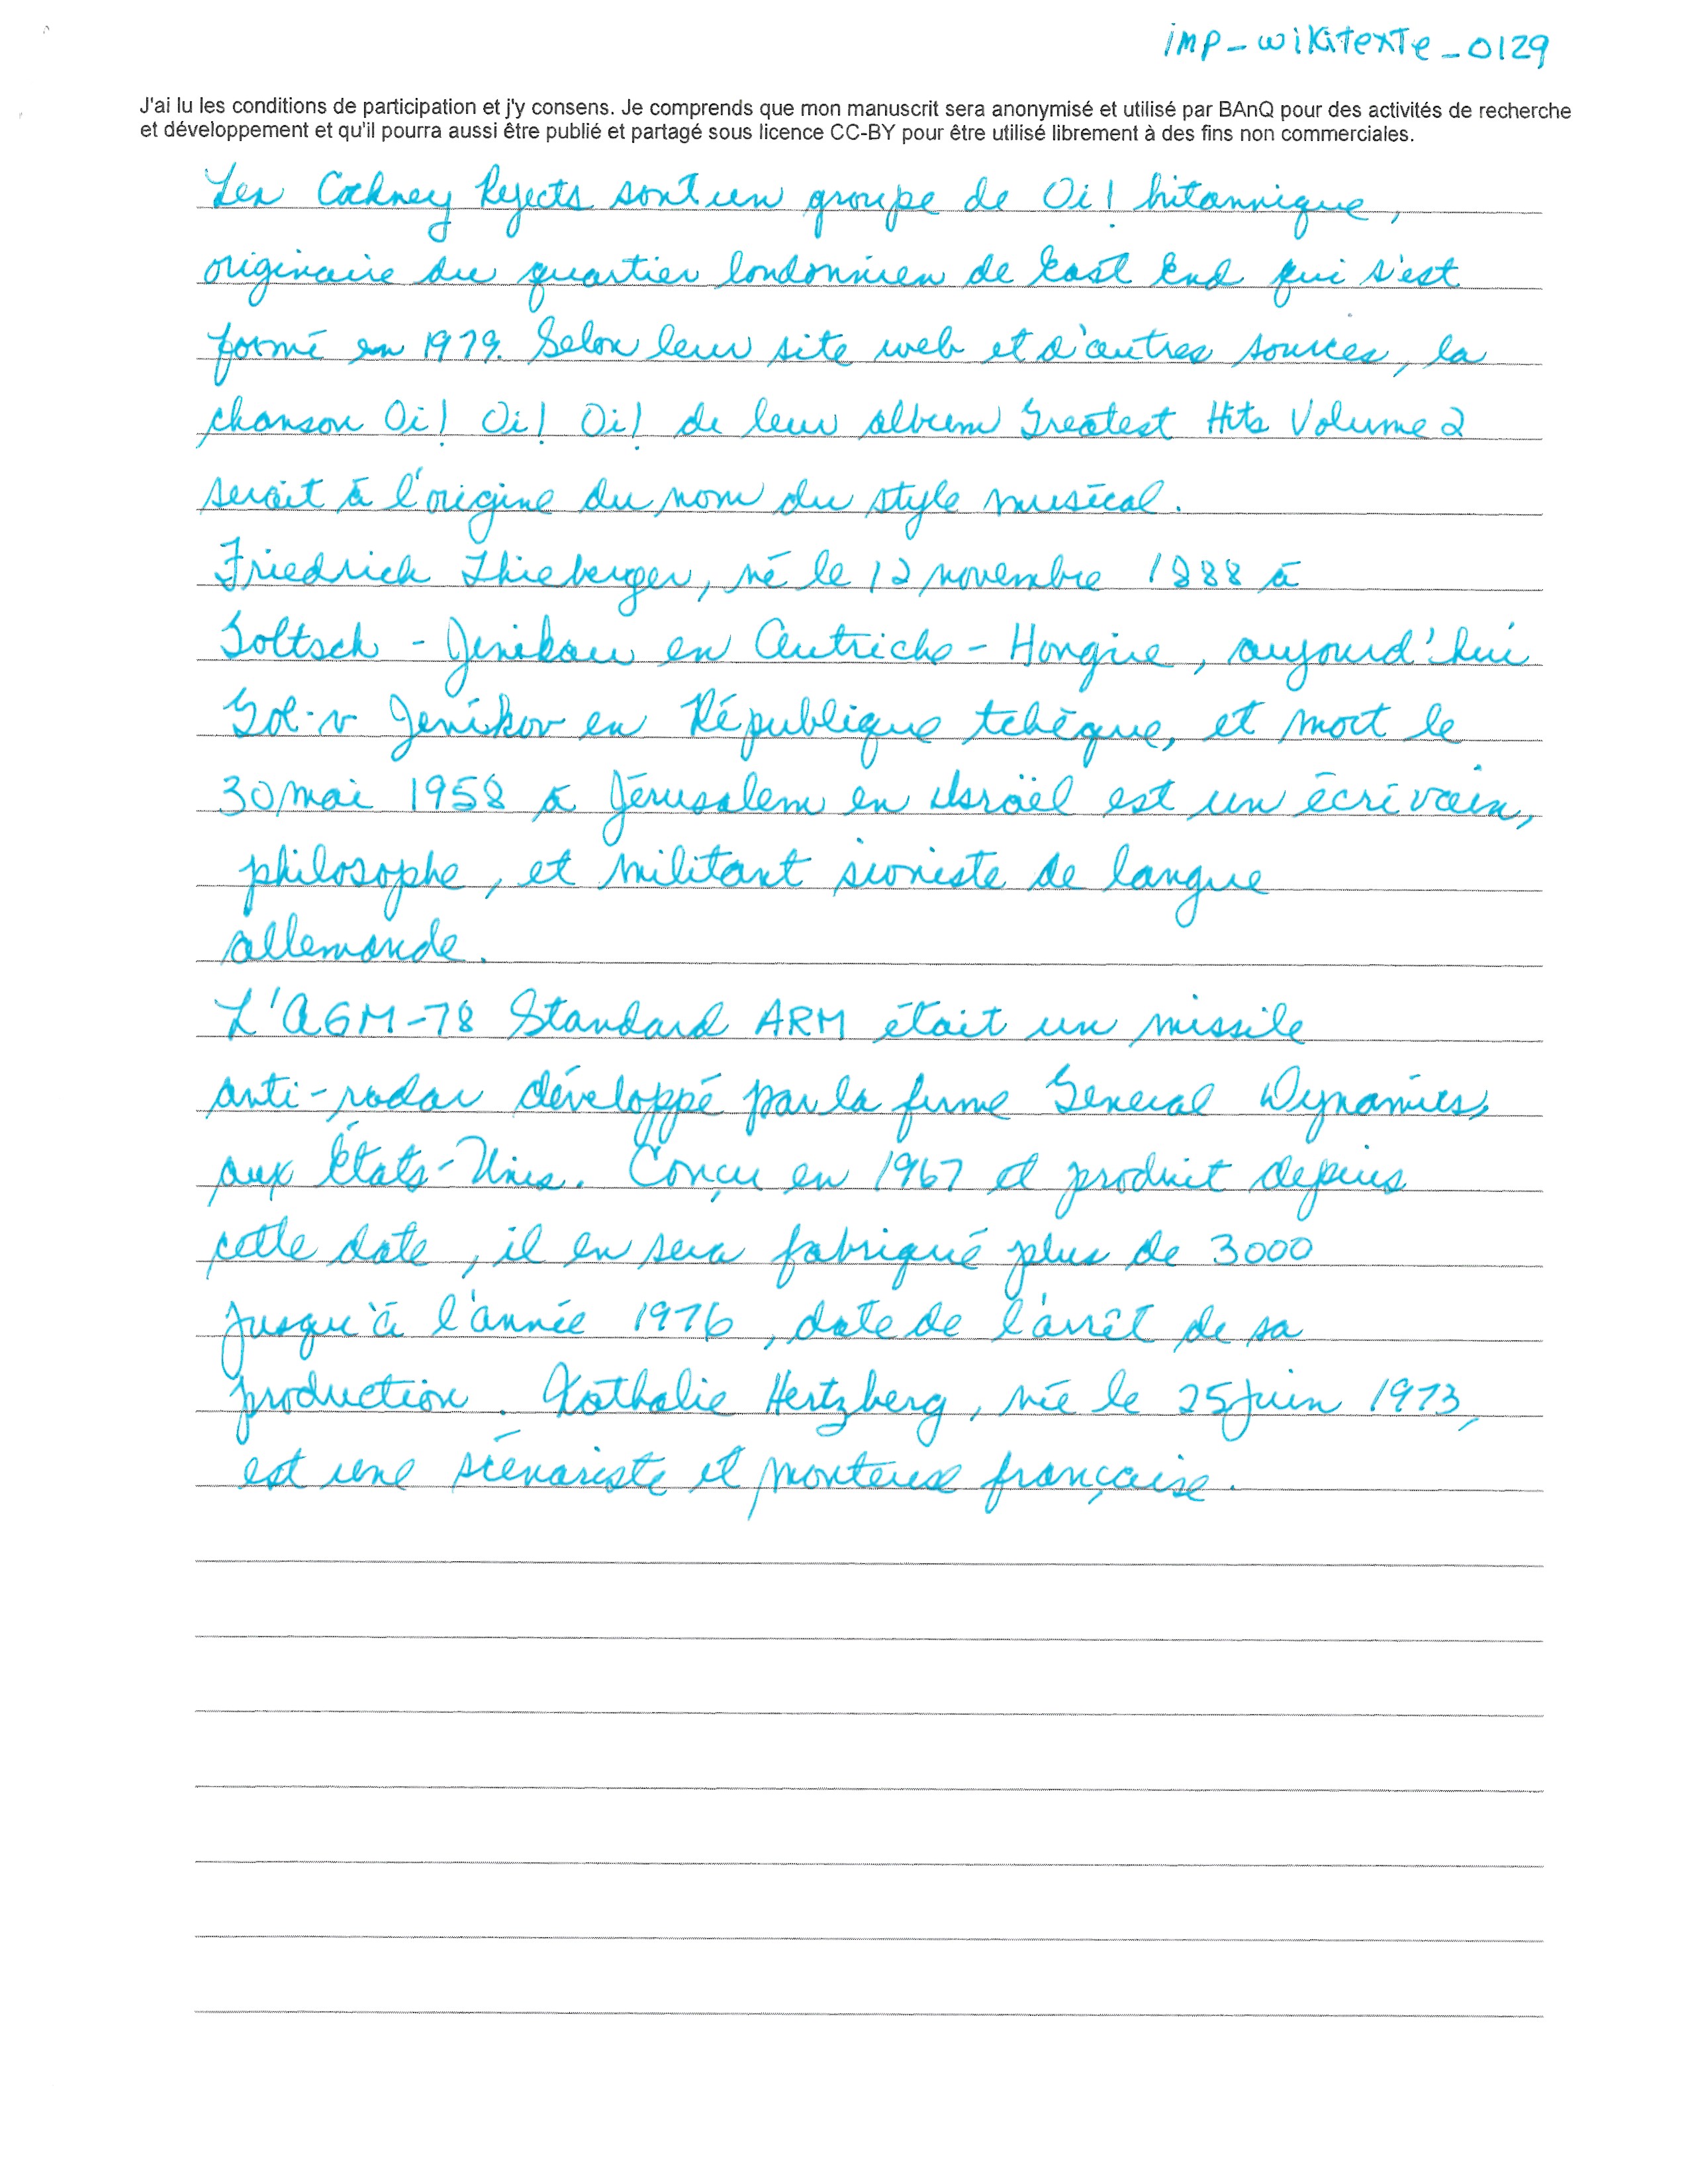 imp-wikitexte-0129
J'ai lu les conditions de participation et j'y consens. Je comprends que mon manuscrit sera anonymisé et utilisé par BAnQ pour des activités de recherche
et développement et qu'il pourra aussi être publié et partagé sous licence CC-BY pour être utilisé librement à des fins non commerciales.
Les Cockney Rejects sont un groupe de Oi! britannique,
originaire du quartier londonnien de East End qui s'est
formé en 1979. Selon leur site web et d'autres sources, la
chanson Oi! Oi! Oi! de leur album Greatest Hits Volume 2
serait à l'origine du nom du style musical.
Friedrich Thieberger, né le 12 novembre 1888 à
Goltsch-Jenikau en Autriche-Hongrie, aujourd'hui
Gol-v Jeníkov en République tchèque, et mort le
30 mai 1958 à Jérusalem en Israël est un écrivain,
philosophe, et militant sioniste de langue
allemande.
L'AGM-78 Standard ARM était un missile
anti-radar développé par la firme General Dynamics,
aux États-Unis. Conçu en 1967 et produit depuis
cette date, il en sera fabriqué plus de 3000
jusqu'à l'année 1976, date de l'arrêt de sa
production. Nathalie Hertzberg, née le 25 juin 1973,
est une scénariste et monteuse française.